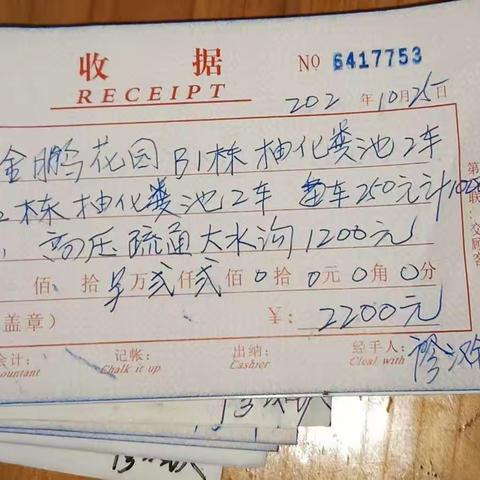 收 据
RECEIPT
No 6417753
202 年10月25日
金鹏花园B1栋抽化粪池2车
2栋抽化粪池2车 每车250元计1000
高压疏通大水沟1200元
佰 拾 万 贰 仟 贰 佰 0 拾 0 元 0 角 0 分
盖章） ¥: 2200元
会计: 记帐: 出纳: 经手人:
ountant Chalk it up Cashier Cleal with
第 联:交顾客